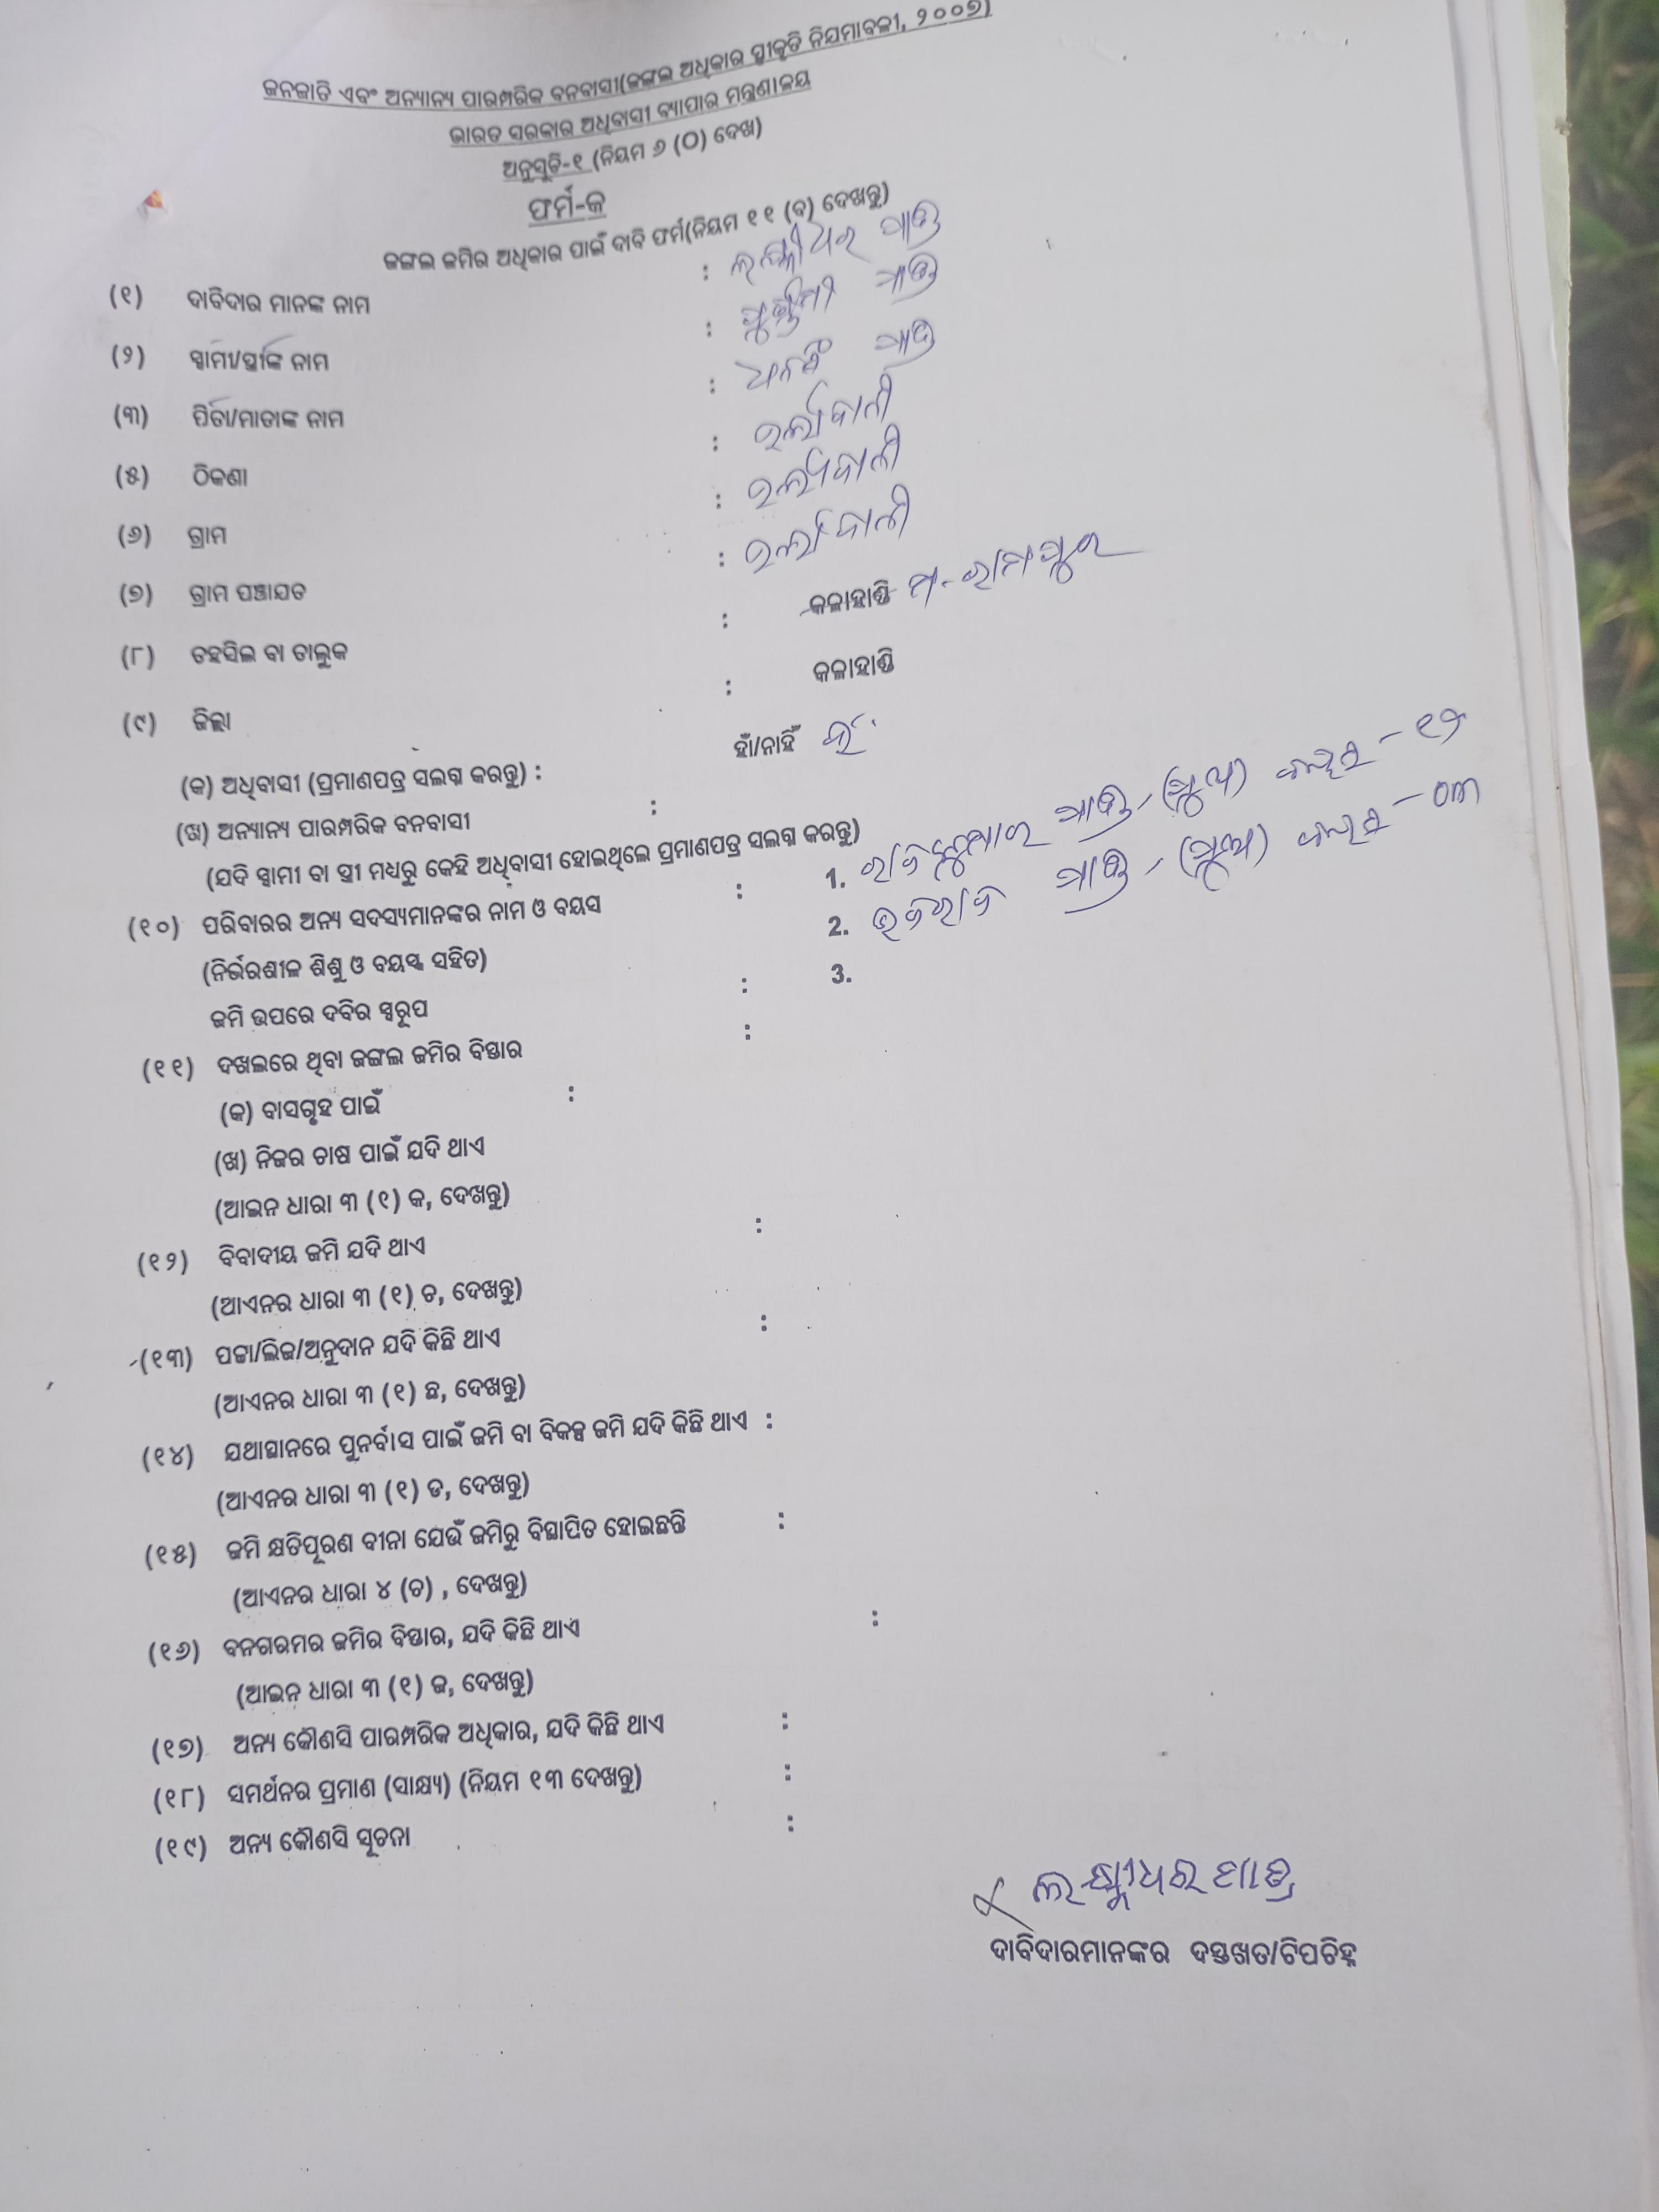 ଜନଜାତି ଏବଂ ଅନ୍ୟାନ୍ୟ ପାରମ୍ପରିକ ବନବାସୀ(ଜଙ୍ଗଲ ଅଧିକାର ସ୍ବୀକୃତି ନିଯମାବଳୀ, ୨୦୦୭)
ଭାରତ ସରକାର ଅଧିବାସୀ ବ୍ୟାପାର ମନ୍ତ୍ରଣାଳୟ
ଅନୁସୂଚି-୧ (ନିୟମ ୬ (ଠ) ଦେଖ)
ଫର୍ମ-କ
ଜଙ୍ଗଲ ଜମିର ଅଧିକାର ପାଇଁ ଦାବି ଫର୍ମ(ନିୟମ ୧୧ (ବ) ଦେଖନ୍ତୁ)
(୧) ଦାବିଦାର ମାନଙ୍କ ନାମ : ଲକ୍ଷ୍ମୀଧର ପାତ୍ର
(୨) ସ୍ୱାମୀ/ସ୍ତ୍ରୀଙ୍କ ନାମ : ପାତ୍ର
(୩) ପିତା/ମାତାଙ୍କ ନାମ : ପାତ୍ର
(୫) ଠିକଣା :
(୬) ଗ୍ରାମ :
(୭) ଗ୍ରାମ ପଞ୍ଚାଯତ :
(୮) ତହସିଲ ବା ତାଲୁକ : କଳାହାଣ୍ଡି ମ-ରାମପୁର
(୯) ଜିଲ୍ଲା : କଳାହାଣ୍ଡି
(କ) ଅଧିବାସୀ (ପ୍ରମାଣପତ୍ର ସଲଗ୍ନ କରନ୍ତୁ) : ହାଁ/ନାହିଁ
(ଖ) ଅନ୍ୟାନ୍ୟ ପାରମ୍ପରିକ ବନବାସୀ :
(ଯଦି ସ୍ୱାମୀ ବା ସ୍ତ୍ରୀ ମଧ୍ୟରୁ କେହି ଅଧିବାସୀ ହୋଇଥିଲେ ପ୍ରମାଣପତ୍ର ସଲଗ୍ନ କରନ୍ତୁ)
(୧୦) ପରିବାରର ଅନ୍ୟ ସଦସ୍ୟମାନଙ୍କର ନାମ ଓ ବୟସ : 1. ପାତ୍ର - (ପୁଅ) - ୧୨
(ନିର୍ଭରଶୀଳ ଶିଶୁ ଓ ବୟସ୍କ ସହିତ) 2. ପାତ୍ର - (ପୁଅ) - ୦୩
ଜମି ଉପରେ ଦବିର ସ୍ୱରୂପ : 3.
(୧୧) ଦଖଲରେ ଥିବା ଜଙ୍ଗଲ ଜମିର ବିସ୍ତାର :
(କ) ବାସଗୃହ ପାଇଁ :
(ଖ) ନିଜର ଚାଷ ପାଇଁ ଯଦି ଥାଏ
(ଆଇନ ଧାରା ୩ (୧) କ, ଦେଖନ୍ତୁ)
(୧୨) ବିବାଦୀୟ ଜମି ଯଦି ଥାଏ :
(ଆଏନର ଧାରା ୩ (୧) ଚ, ଦେଖନ୍ତୁ)
(୧୩) ପଟ୍ଟା/ଲିଜ/ଅନୁଦାନ ଯଦି କିଛି ଥାଏ :
(ଆଏନର ଧାରା ୩ (୧) ଛ, ଦେଖନ୍ତୁ)
(୧୪) ଯଥାସ୍ଥାନରେ ପୁନର୍ବାସ ପାଇଁ ଜମି ବା ବିକଳ୍ପ ଜମି ଯଦି କିଛି ଥାଏ :
(ଆଏନର ଧାରା ୩ (୧) ଡ, ଦେଖନ୍ତୁ)
(୧୫) ଜମି କ୍ଷତିପୂରଣ ବୀନା ଯେଉଁ ଜମିରୁ ବିସ୍ଥାପିତ ହୋଇଛନ୍ତି :
(ଆଏନର ଧାରା ୪ (ଚ) , ଦେଖନ୍ତୁ)
(୧୬) ବନଗରମର ଜମିର ବିସ୍ତାର, ଯଦି କିଛି ଥାଏ :
(ଆଇନ ଧାରା ୩ (୧) ଜ, ଦେଖନ୍ତୁ)
(୧୭) ଅନ୍ୟ କୌଣସି ପାରମ୍ପରିକ ଅଧିକାର, ଯଦି କିଛି ଥାଏ :
(୧୮) ସମର୍ଥନର ପ୍ରମାଣ (ସାକ୍ଷ୍ୟ) (ନିୟମ ୧୩ ଦେଖନ୍ତୁ) :
(୧୯) ଅନ୍ୟ କୌଣସି ସୂଚନା :
ଲକ୍ଷ୍ମୀଧର ପାତ୍ର
ଦାବିଦାରମାନଙ୍କର ଦସ୍ତଖତ/ଟିପଚିହ୍ନ